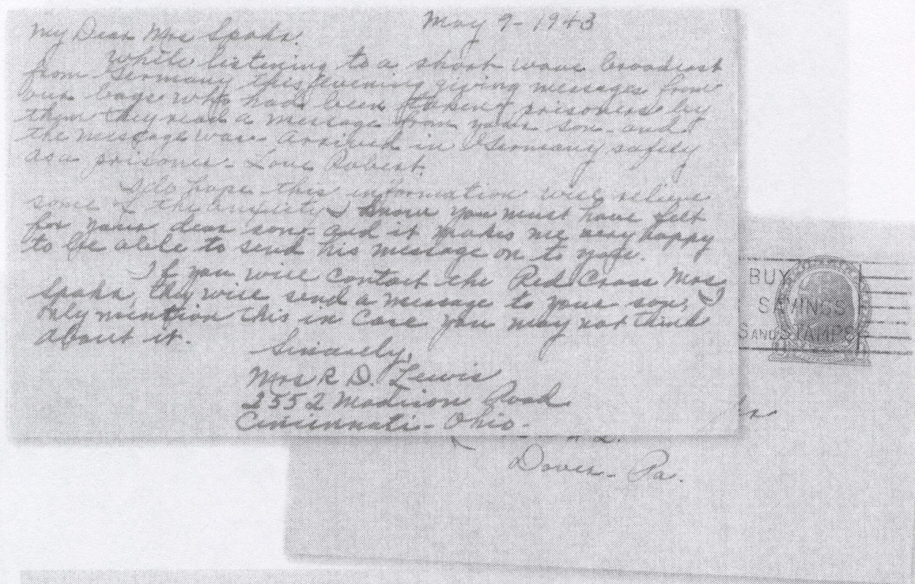 May 9-1943
My Dear Mrs Spahr.
While listening to a short wave broadcast
from Germany this evening giving messages from
our boys who had been taken prisoners by
them they read a message from your son - and
the message was - Arrived in Germany safely
as a prisoner - Love Robert.
I do hope this information will relieve
some of the anxiety I know you must have felt
for your dear son - and it makes me very happy
to be able to send his message on to you.
If you will contact the Red Cross Mrs
Spahr, they will send a message to your son, I
only mention this in case you may not think
about it.
Sincerely,
Mrs R D. Lewis
2552 Madison Road
Cincinnati - Ohio.
BUY
SAVINGS
AND STAMPS
Dover - Pa.